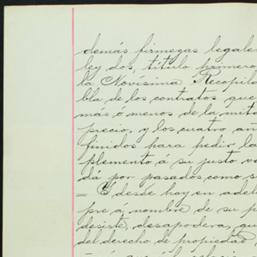 demás firmezas legales
ley dos, título primero
la Novísima Recopil
bla de los contratos que
más ó menos de la mita
precio, y los cuatro añ
finidos para pedir la
plemento á su justo va
dá por pasados como s
- Y desde hoy en adel
pre á nombre de su p
desiste, desapodera, qu
del derecho de propiedad,